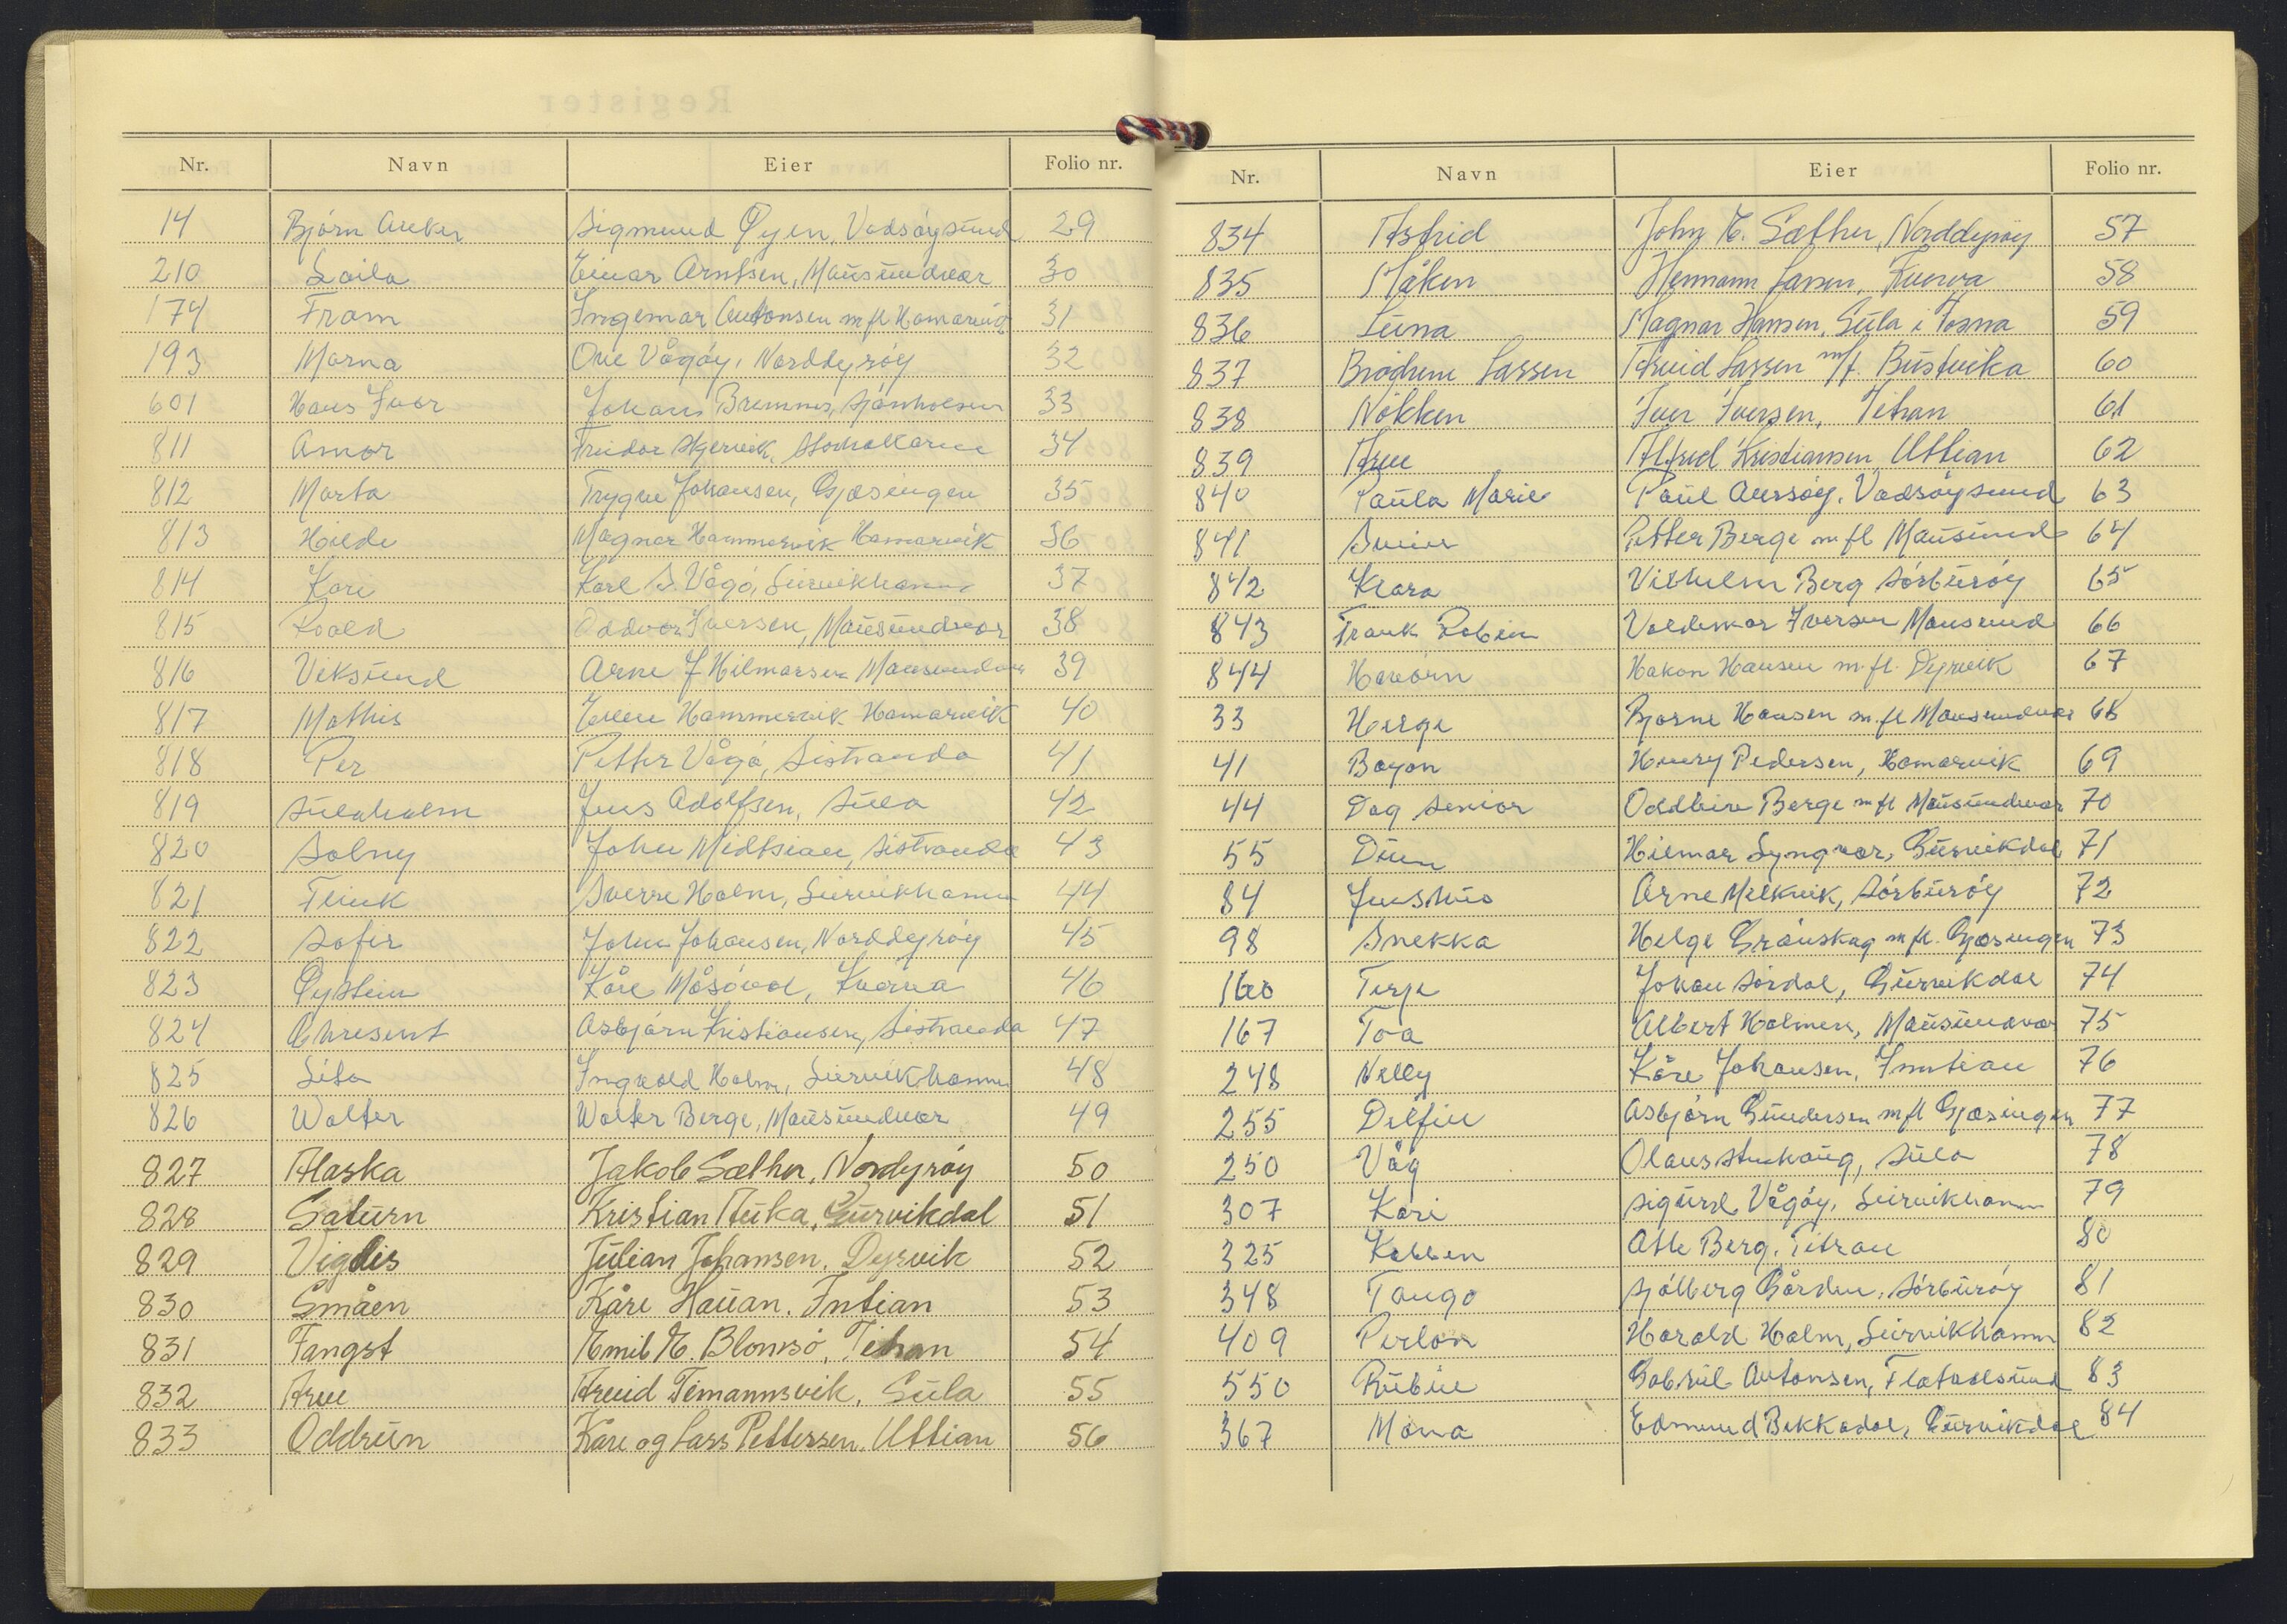 Nr. Navn Eier Folio nr.
14 Bjørn Anker Sigmund Øyen, Vadsøysund 29
210 Laila Einar Arntsen, Mausundvær 30
174 Fram Ingemar Antonsen m fl Hamarvik 31
193 Marna Ove Vågøy, Norddyrøy 32
601 Hans Ivar Johan Bremnes, 33
811 Amor 34
812 Marta Trygve Johansen, Gjæsingen 35
813 Hilde Magnar Hammervik Hamarvik 36
814 Kari Karl S. Vågø, Sørvikhamn 37
815 Roald Oddvar Iversen, Mausundvær 38
816 Viksund Arne J Hilmarsen Mausundvær 39
817 Mathis Hammervik Hamarvik 40
818 Per Petter Vågø, Sistranda 41
819 Sulaholm Jens Adolfsen, Sula 42
820 Solny John Midtsian, Sistranda 43
821 Flink Sverre Holm, Sørvikhamn 44
822 Safir John Johansen, Norddyrøy 45
823 Øystein Kåre Måsøval, Kverva 46
824 Chresent Asbjørn Kristiansen, Sistranda 47
825 Lita Ingvald Holm, Sørvikhamn 48
826 Walter Walter Berge, Mausundvær 49
827 Alaska Jakob Sæther, Nordyrøy 50
828 Saturn Kristian Auka, Gurvikdal 51
829 Vigdis Julian Johansen, Dyrvik 52
830 Småen Kåre Hauan, Intian 53
831 Fangst Emil E. Blomsø, Titran 54
832 Arve Arvid Timannsvik, Sula 55
833 Oddrun Kåre og Lars Pettersen, Uttian 56
Nr. Navn Eier Folio nr.
834 Astrid John E. Sæther, Norddyrøy 57
835 Måken Hermann Larsen, Kverva 58
836 Luna Magnar Hansen, Sula i Fosna 59
837 Brødrene Larsen Arvid Larsen m/f. Bustvika 60
838 Nøkken Iver Iversen, Titran 61
839 Arve Alfred Kristiansen Uttian 62
840 Paula Marie Paul Aursøy, Vadsøysund 63
841 Petter Berge m fl Mausund 64
842 Klara Vilhelm Berg Sørburøy 65
843 Frank Robin Valdemar Iversen Mausund 66
844 Havørn Håkon Hansen m. fl. Dyrvik 67
33 Herge Bjarne Hansen m. fl Mausundvær 68
41 Bayon Henry Pedersen, Hamarvik 69
44 Dag Senior Oddleiv Berge m fl Mausundvær 70
55 Duen Hilmar Lyngvær, Gurvikdal 71
84 Justus Arne Melkvik, Sørburøy 72
98 Snekka Helge Grønskag m fl. Gjæsingen 73
160 Terje Johan Sørdal, Gurvikdal 74
167 Toa Albert Holmen, Mausundvær 75
248 Nelly Kåre Johansen, Inntian 76
255 Delfin Asbjørn Gundersen m fl Gjæsingen 77
250 Våg Olaus Sula 78
307 Kari Sigurd Vågøy, Sørvikhamn 79
325 Kobben Atle Berg, Titran 80
348 Tango Sjølberg Gården, Sørburøy 81
409 Perlon Harald Holm, Sørvikhamn 82
550 Rubin Gabriel Antonsen, Flatvalsund 83
367 Mona Edmund Bekkadal, Gurvikdal 84